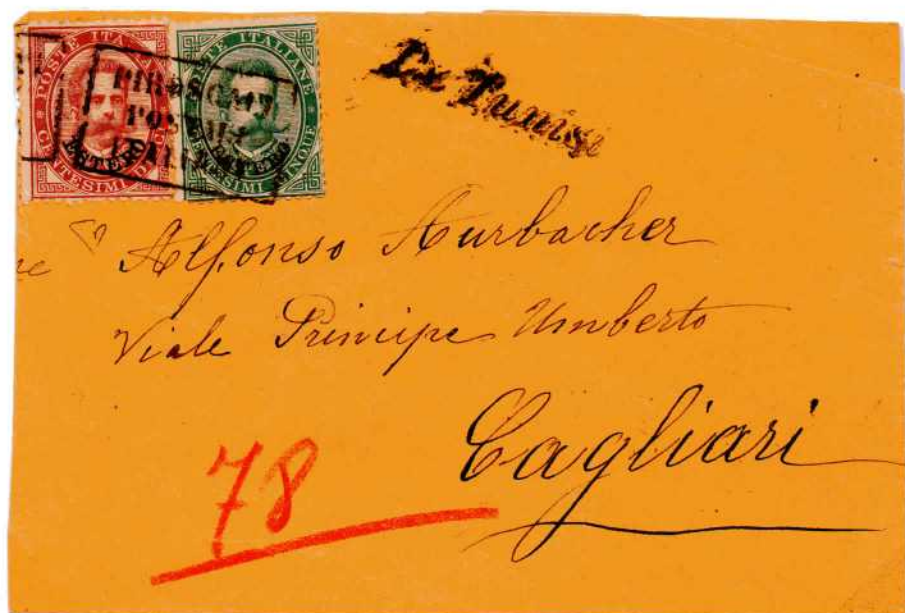 POSTE ITALIANE
ESTERO
CENTESIMI DIECI
POSTE ITALIANE
ESTERO
CENTESIMI CINQUE
PIROSCAFI
POSTALI
ITALIANI
Da Tunisi
Alfonso Aurbacher
Viale Principe Umberto
Cagliari
78